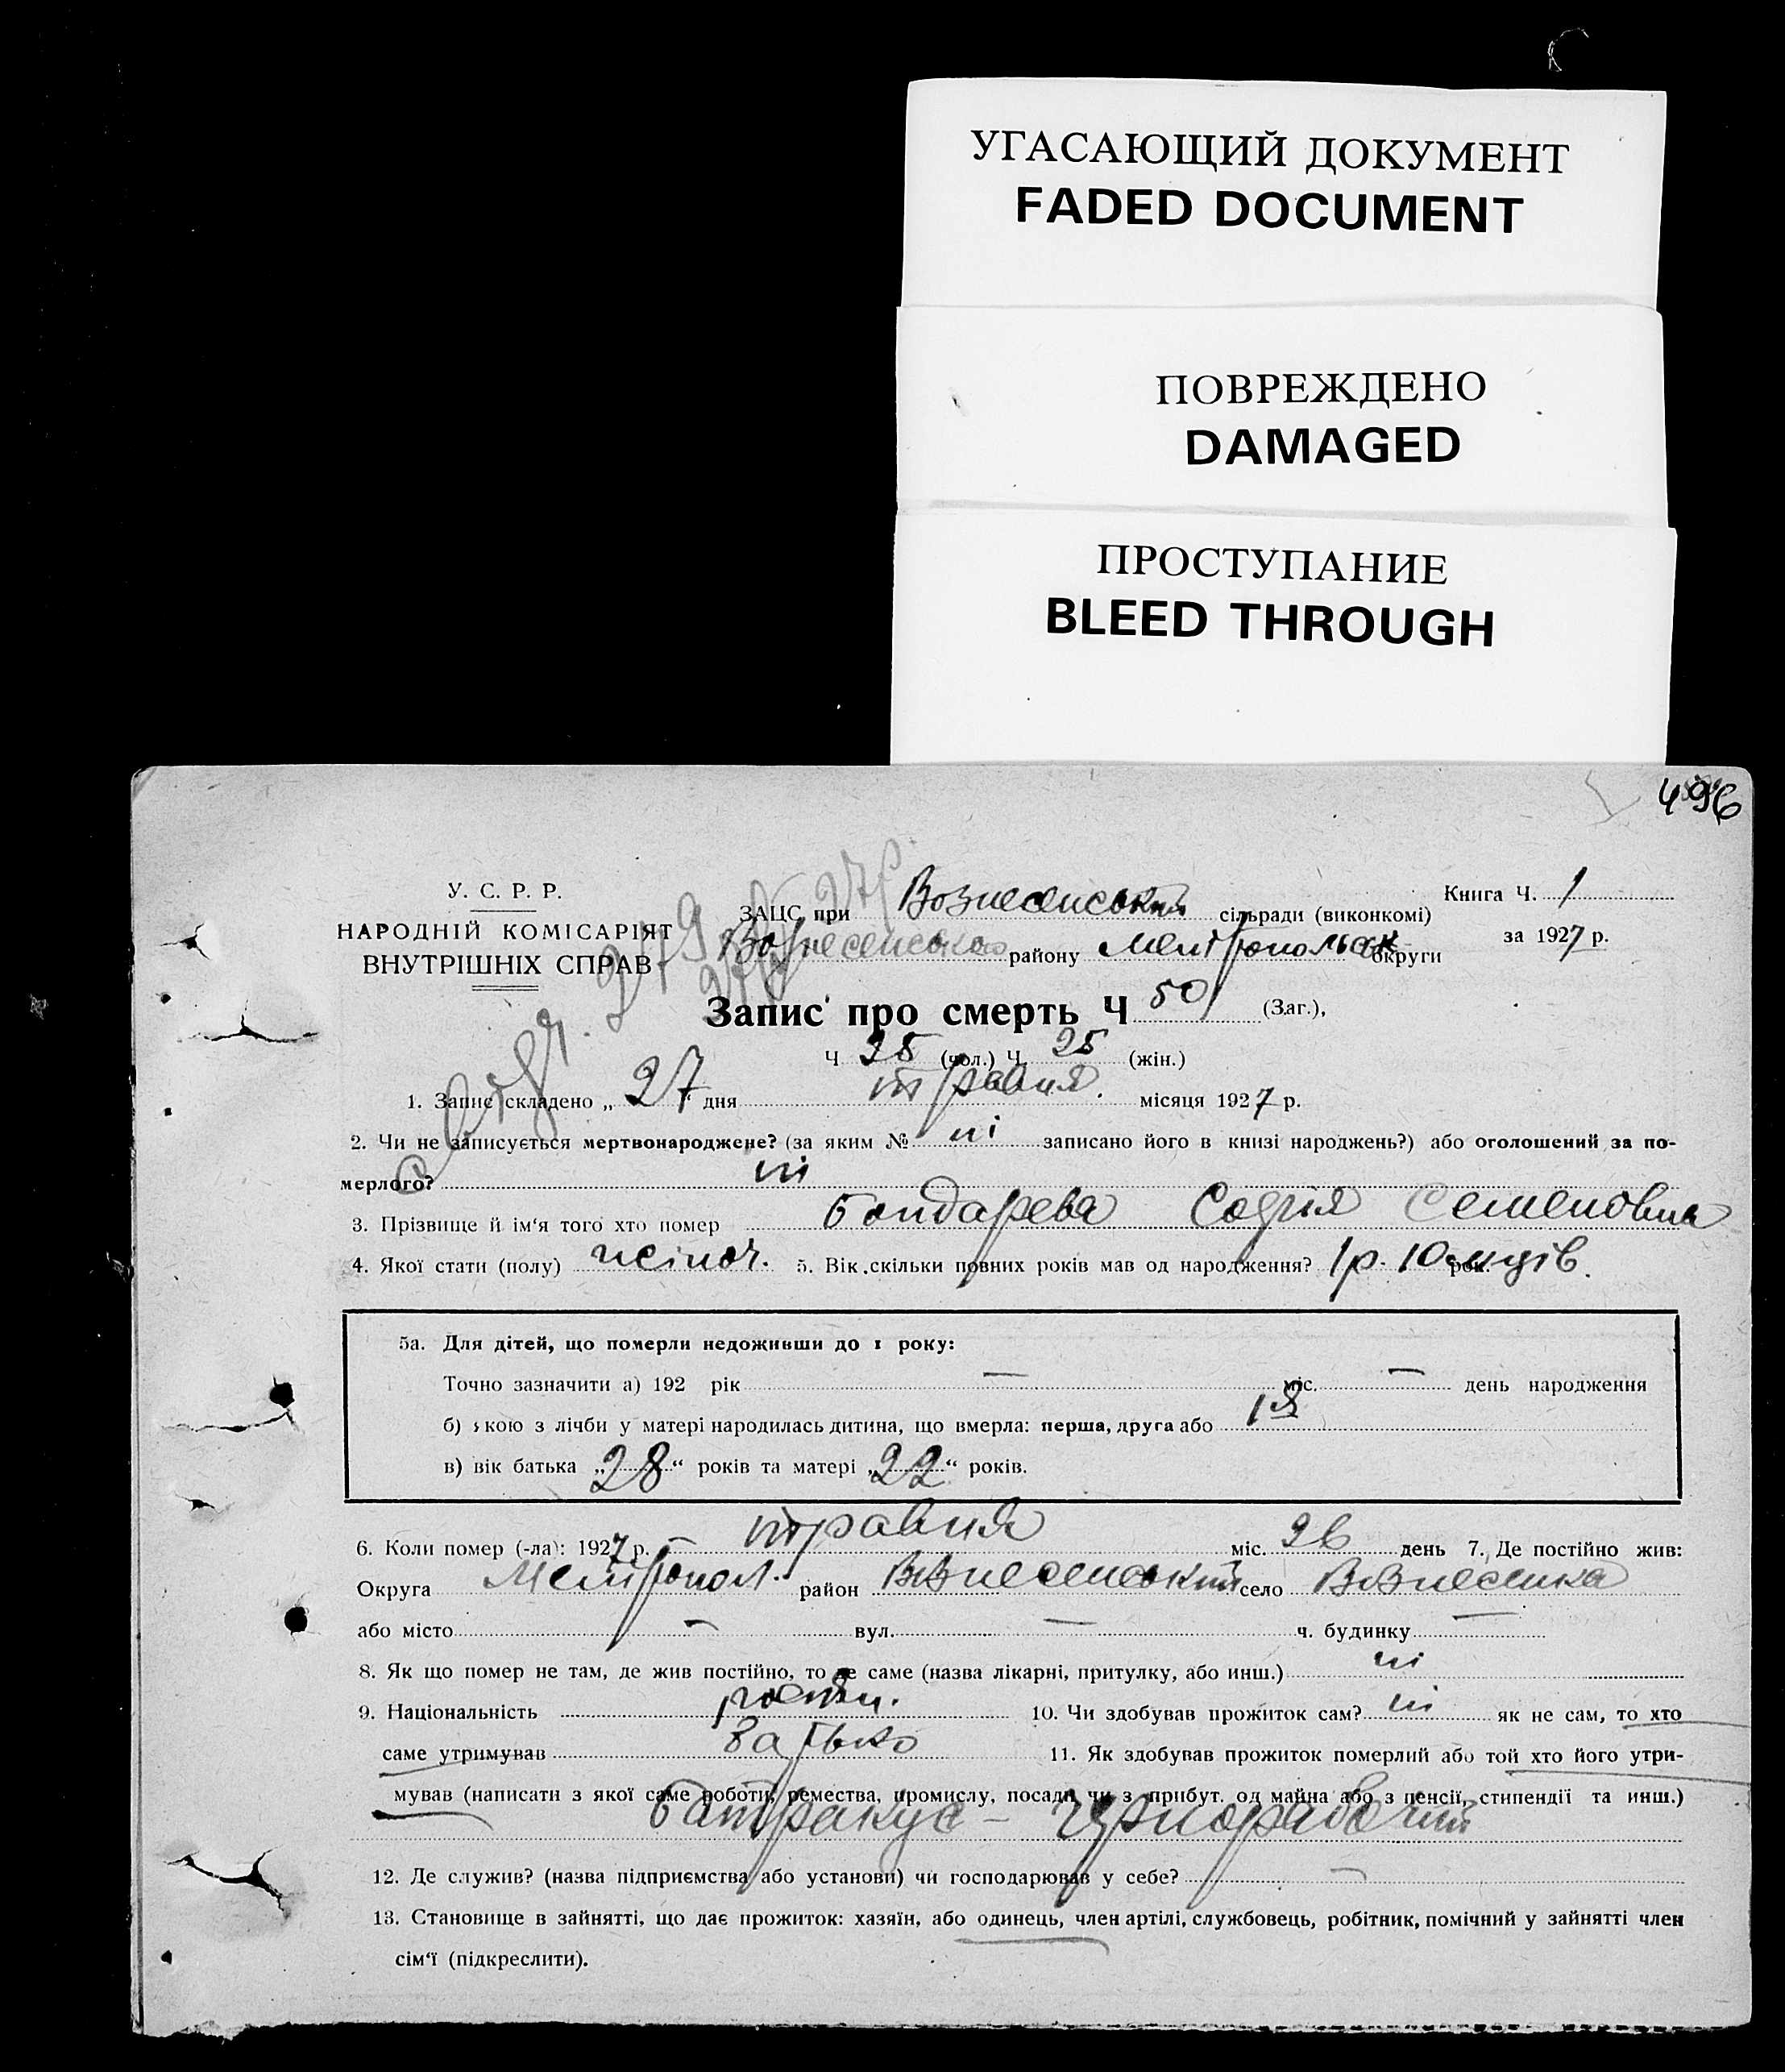 УГАСАЮЩИЙ ДОКУМЕНТ
FADED DOCUMENT
ПОВРЕЖДЕНО
DAMAGED
ПРОСТУПАНИЕ
BLEED THROUGH
496
У. С. Р. Р.
НАРОДНІЙ КОМІСАРІЯТ
ВНУТРІШНІХ СПРАВ
ЗАЦС при Вознесенській сільради (виконкомі)
Вознесенського району Мелітопольск округи
Книга Ч. 1
за 1927 р.
Запис про смерть Ч 50 (Заг.),
Ч 25 (чол.) Ч. 25 (жін.)
1. Запис складено „ 27 дня травня. місяця 1927 р.
2. Чи не записується мертвонароджене? (за яким № ні записано його в книзі народжень?) або оголошений за по-
мерлого? ні
3. Прізвище й ім'я того хто помер Бондарева Софія Семеновна
4. Якої стати (полу) жіноч. 5. Вік скільки повних років мав од народження? 1 р. 10 місців. рок.
5а. Для дітей, що померли недоживши до 1 року:
Точно зазначити а) 192 рік — міс. — день народження
б) якою з лічби у матері народилась дитина, що вмерла: перша, друга або 1я
в) вік батька „28“ років та матері „22“ років.
6. Коли помер (-ла): 1927 р. травня міс. 26 день 7. Де постійно жив:
Округа Мелітопол. район Вознесенський село Вознесенка
або місто — вул. — ч. будинку —
8. Як що помер не там, де жив постійно, то де саме (назва лікарні, притулку, або инш.) ні
9. Національність 10. Чи здобував прожиток сам? ні як не сам, то хто
саме утримував батько 11. Як здобував прожиток померлий або той хто його утри-
мував (написати з якої саме роботи, ремества, промислу, посади чи з прибут. од майна або з пенсії, стипендії та инш.)
батракує — чорнорабочий
12. Де служив? (назва підприємства або установи) чи господарював у себе? —
13. Становище в зайнятті, що дає прожиток: хазяїн, або одинець, член артілі, службовець, робітник, помічний у зайнятті член
сім'ї (підкреслити).